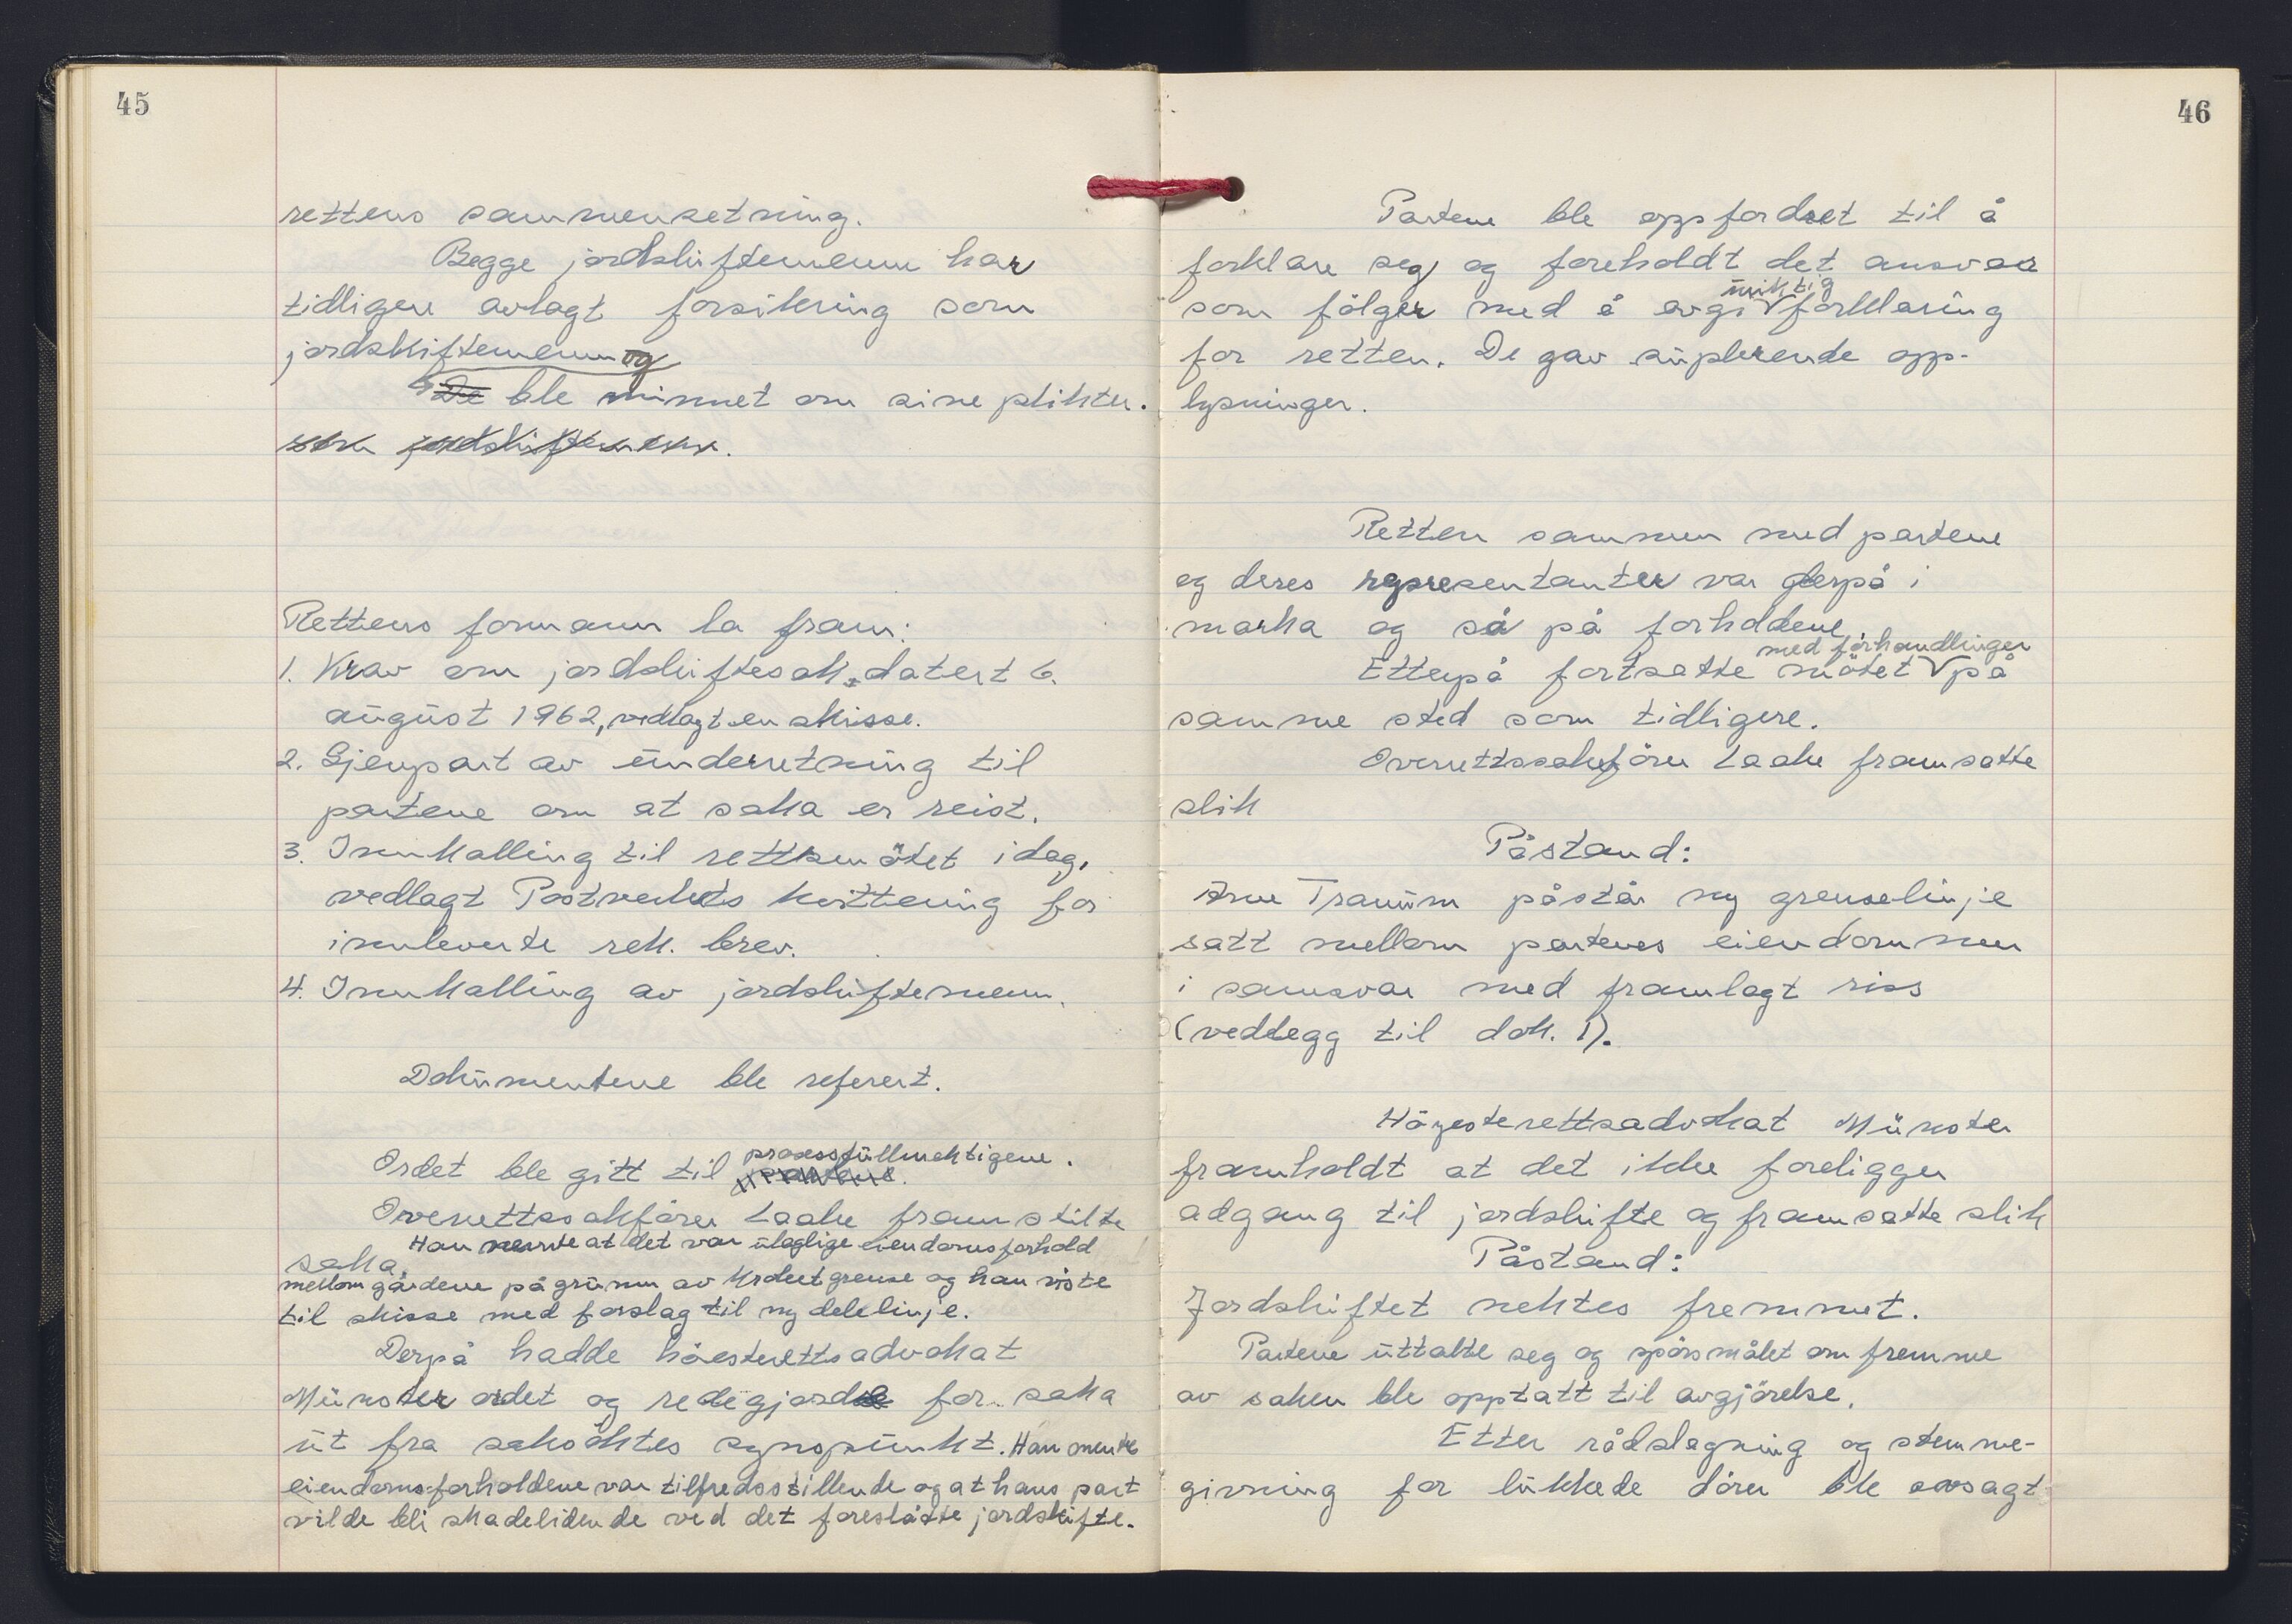 45
rettens sammensetning.
Begge jordskiftemenn har
tidligere avlagt forsikring som
jordskiftemenn og
De ble minnet om sine plikter.
som jordskiftemenn.
Rettens formann la fram:
1. Krav om jordskiftesak, datert 6.
august 1962, vedlagt en skisse.
2. Gjenpart av underretning til
partene om at saka er reist.
3. Innkalling til rettsmötet idag,
vedlagt Postverkets kvittering for
innleverte rek. brev.
4. Innkalling av jordskiftemenn.
Dokumentene ble referert.
prosessfullmektigene.
Ordet ble gitt til partene.
Overettssakförer Laake framstilte
saka. Han mente at det var ulaglige eiendomsforhold
mellom gårdene på grunn av kroket grense og han viste
til skisse med forslag til ny delelinje.
Derpå hadde höesterettsadvokat
Münster ordet og redegjorde for saka
ut fra saksöktes synspunkt. Han mente
eiendomsforholdene var tilfredsstillende og at hans part
vilde bli skadelidende ved det foreslåtte jordskifte.
46
Partene ble oppfordret til å
forklare seg og foreholdt det ansvar
riktig
som fölger med å avgi forklaring
for retten. De gav suplerende opp-
lysninger.
Retten sammen med partene
og deres representanter var derpå i
marka og så på forholdene.
med forhandlinger
Etterpå fortsatte mötet på
samme sted som tidligere.
Overrettssakförer Laake framsatte
slik
Påstand:
Arne Tranum påstår ny grenselinje
satt mellom partenes eiendommer
i samsvar med framlagt riss
(vedlegg til dok. 1).
Höyesterettsadvokat Münster
framholdt at det ikke foreligger
adgang til jordskifte og framsatte slik
Påstand:
Jordskiftet nektes fremmet.
Partene uttalte seg og spörsmålet om fremme
av saken ble opptatt til avgjörelse.
Etter rådslagning og stemme-
givning for lukkede dörer ble avsagt